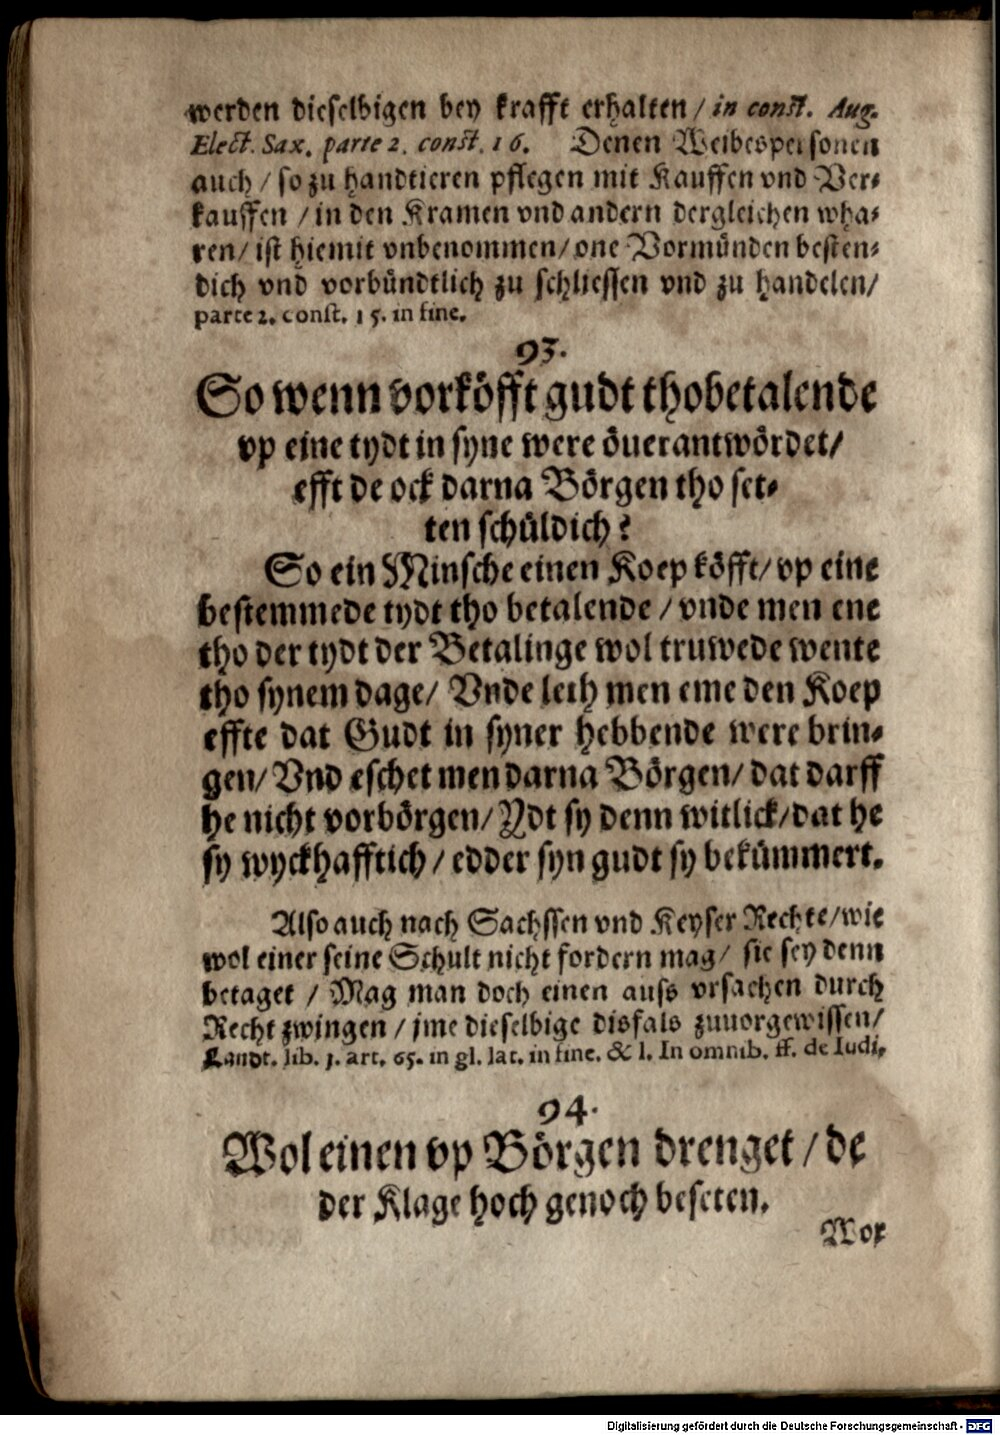 werden dieselbigen bey krafft erhalten / in const. Aug.
Elect. Sax. parte 2. const. 16. Denen Weibespersonen
auch / so zu handtieren pflegen mit Kauffen vnd Ver-
kauffen / in den Kramen vnd andern dergleichen wha-
ren / ist hiemit vnbenommen / one Vormünden besten-
dich vnd vorbündtlich zu schliessen vnd zu handelen /
parte 2. const. 15. in fine.
93.
So wenn vorköfft gudt thobetalende
vp eine tydt in syne were öuerantwördet /
efft de ock darna Börgen tho set-
ten schüldich?
So ein Minsche einen Koep köfft / vp eine
bestemmede tydt tho betalende / vnde men ene
tho der tydt der Betalinge wol truwede wente
tho synem dage / Vnde leth men eme den Koep
effte dat Gudt in syner hebbende were brin-
gen / Vnd eschet men darna Börgen / dat darff
he nicht vorbörgen / Ydt sy denn witlick / dat he
sy wyckhafftich / edder syn gudt sy bekümmert.
Also auch nach Sachssen vnd Keyser Rechte / wie
wol einer seine Schult nicht fordern mag / sie sey denn
betaget / Mag man doch einen auss vrsachen durch
Recht zwingen / jme dieselbige disfals zuuorgewissen /
Landt. lib. j. art. 65. in gl. lat. in fine. & l. In omnib. ff. de Iudi.
94.
Wol einen vp Börgen drenget / de
der Klage hoch genoch beseten.
Wor
Digitalisierung gefördert durch die Deutsche Forschungsgemeinschaft - DFG